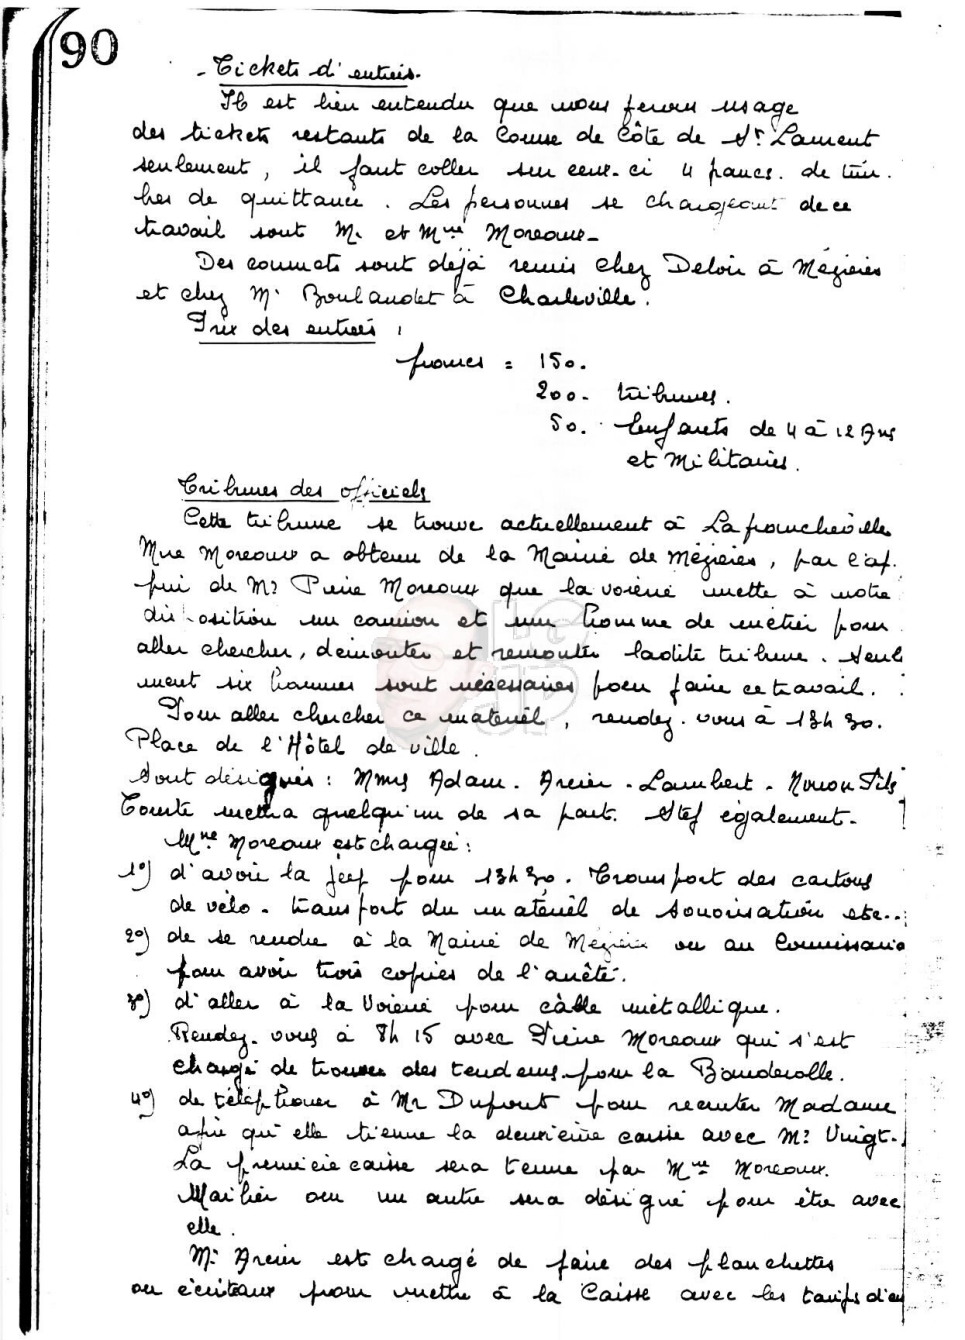 90
- Tickets d'entrées.
Il est bien entendu que nous ferons usage
des tickets restants de la Course de Côte de St Laurent
seulement, il faut coller sur ceux-ci 4 francs. de tim-
bres de quittance. Les personnes se chargeant de ce
travail sont M. et Mme Moreaux-
Des carnets sont déjà remis chez Deloir à Mézières
et chez Mr Boulandet à Charleville.
Prix des entrées :
francs = 150.
200- tribunes.
50. enfants de 4 à 12 Ans
et Militaires.
Tribunes des officiels
Cette tribune se trouve actuellement à La francheville
Mme Moreaux a obtenu de la Mairie de Mézières, par l'ap-
pui de Mr Pierre Moreaux que la voierie mette à notre
disposition un camion et un homme de métier pour
aller chercher, démonter et remonter ladite tribune. Seule
ment six hommes sont nécessaires pour faire ce travail.
Pour aller chercher ce matériel, rendez-vous à 13h 30.
Place de l'Hôtel de ville.
Sont désignés : Mmrs Adam - Arcin - Lambert - Fils
Comte mettra quelqu'un de sa part. Stef également-
Mme Moreaux est chargée :
1°) d'avoir la jeep pour 13h 30. Transport des cartons
de vélo - transport du matériel de sonorisation etc...
2°) de se rendre à la Mairie de Mézières ou au Commissaria
pour avoir trois copies de l'arrêté.
3°) d'aller à la Voierie pour câble métallique.
Rendez-vous à 8h 15 avec Pierre Moreaux qui s'est
chargé de trouver des tendeurs pour la Banderolle.
4°) de téléphoner à Mr Dupont pour recruter Madame
afin qu'elle tienne la deuxième caisse avec Mr Vuigt-
La première caisse sera tenue par Mme Moreaux.
Mailier ou un autre sera désigné pour être avec
elle.
Mr Arcin est chargé de faire des planchettes
ou écriteaux pour mettre à la Caisse avec les tarifs d'en